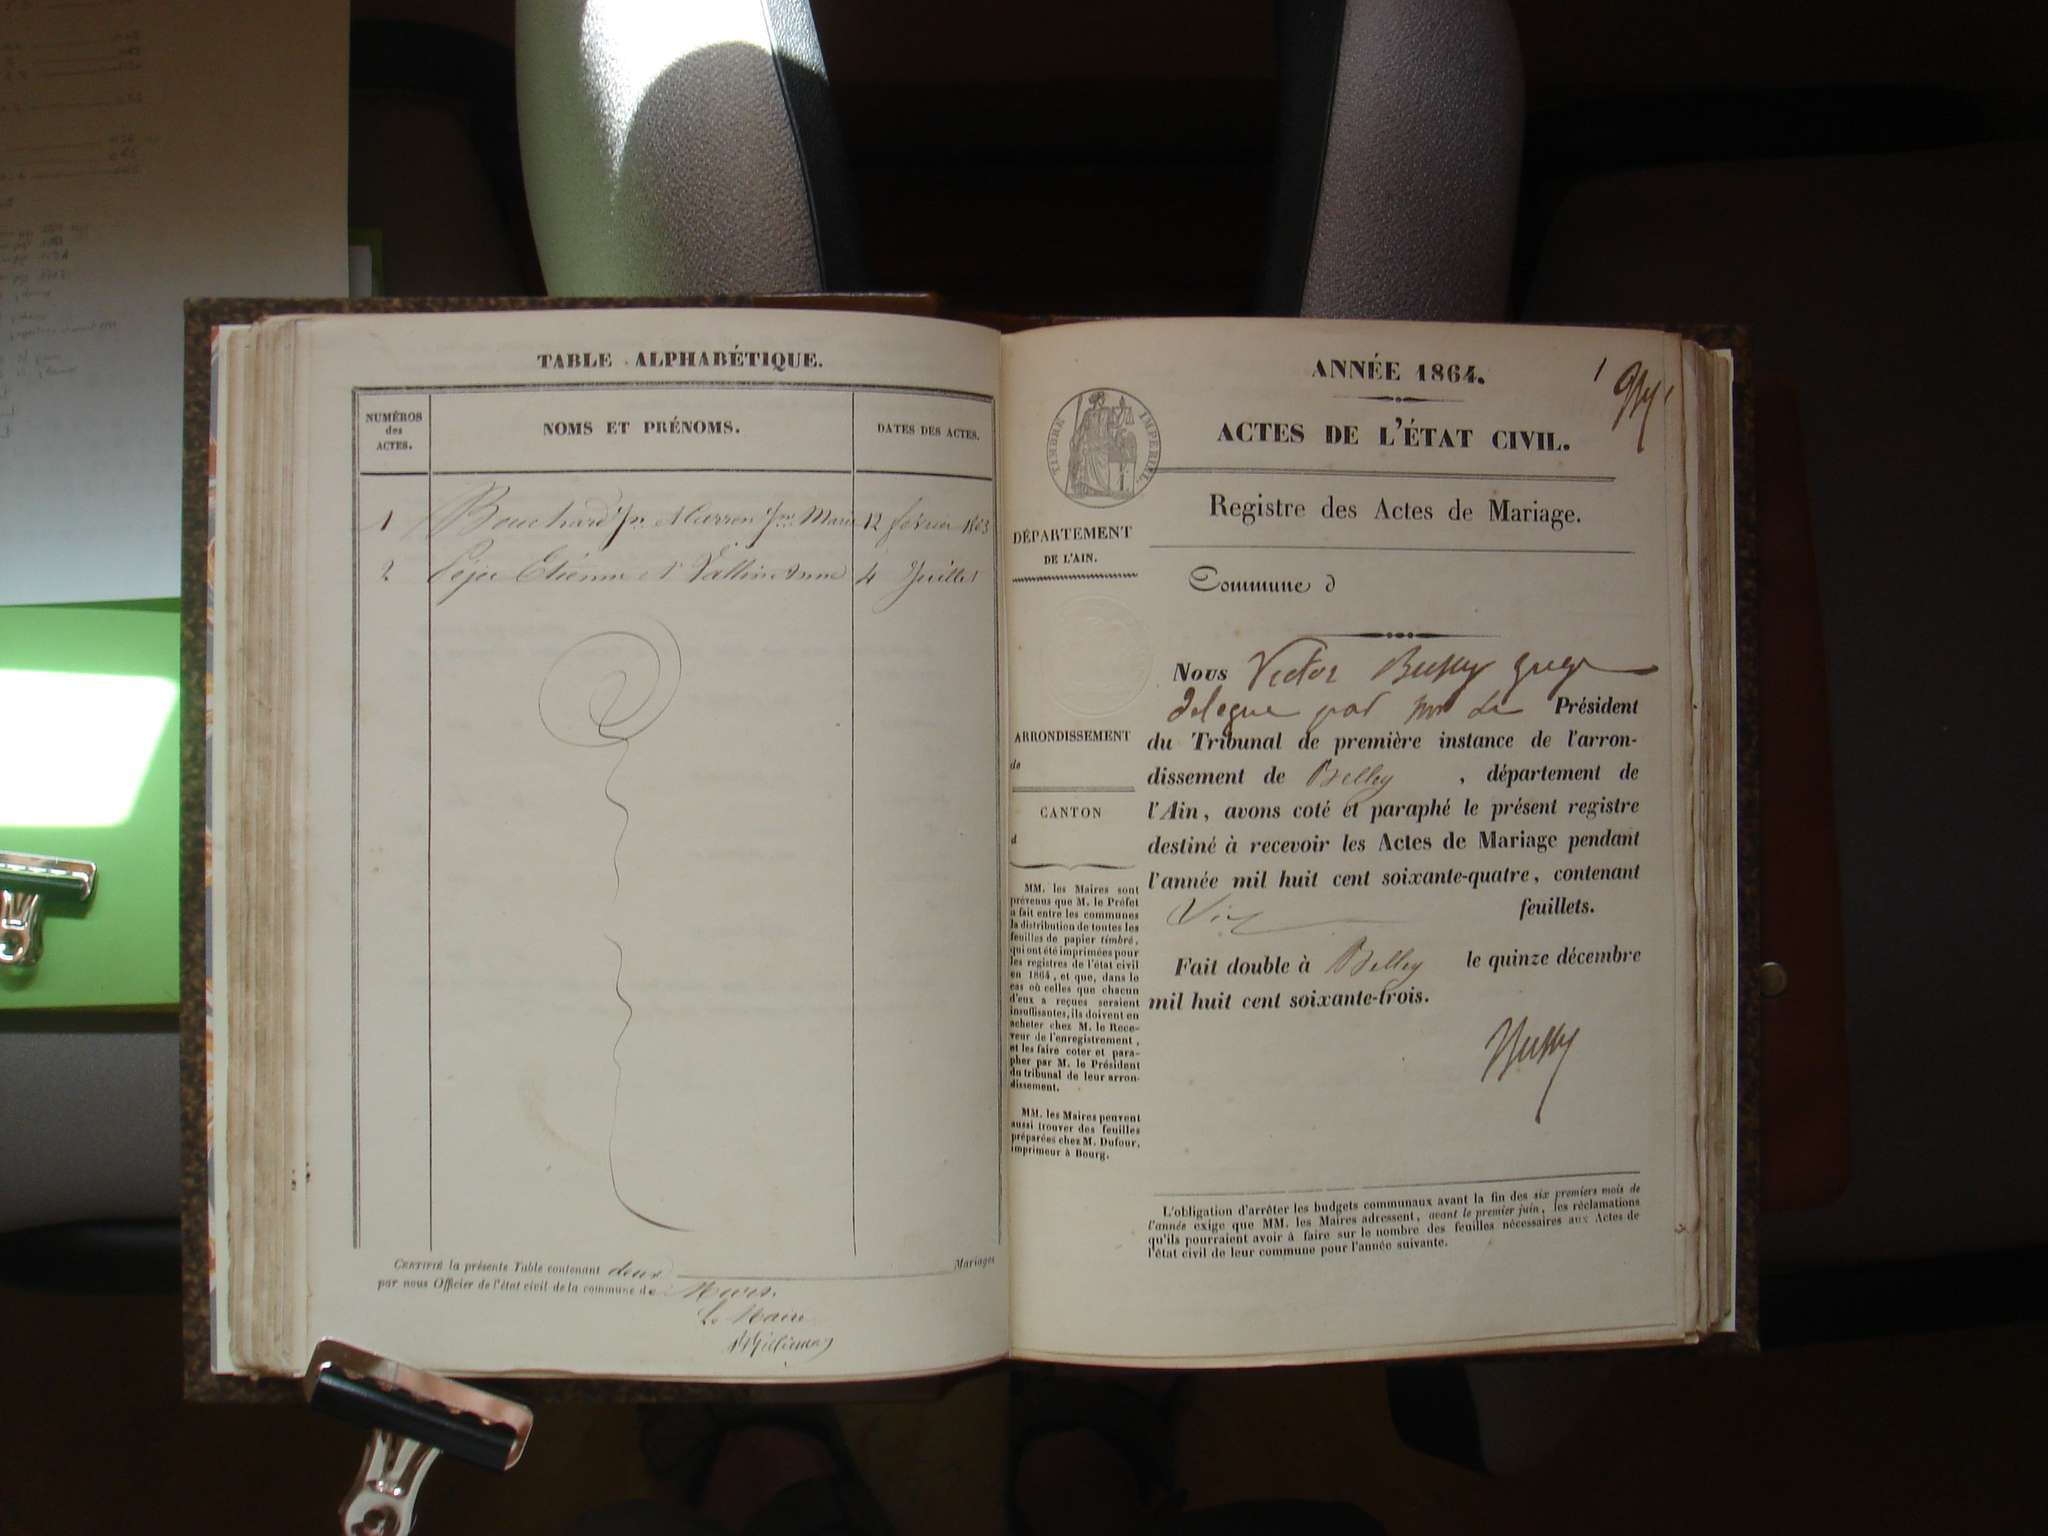 TABLE ALPHABÉTIQUE.
NUMÉROS
des
ACTES.
NOMS ET PRÉNOMS.
DATES DES ACTES.
1 Bouchard Jn. Marie 12 février 1863
2 Etienne et Vallin Anne 4 Juillet
CERTIFIÉ la présente Table contenant deux Mariages
par nous Officier de l'état civil de la commune de
Le Maire
ANNÉE 1864.
1
ACTES DE L'ÉTAT CIVIL.
TIMBRE IMPÉRIAL.
Registre des Actes de Mariage.
DÉPARTEMENT
DE L'AIN.
Commune d
ARRONDISSEMENT
de
CANTON
d
MM. les Maires sont
prévenus que M. le Préfet
a fait entre les communes
la distribution de toutes les
feuilles de papier timbré,
qui ont été imprimées pour
les registres de l'état civil
en 1864, et que, dans le
cas où celles que chacun
d'eux a reçues seraient
insuffisantes, ils doivent en
acheter chez M. le Rece-
veur de l'enregistrement,
et les faire coter et para-
pher par M. le Président
du tribunal de leur arron-
dissement.
MM. les Maires peuvent
aussi trouver des feuilles
préparées chez M. Dufour,
imprimeur à Bourg.
Nous Victor Bussy juge
délégué par Mr Le Président
du Tribunal de première instance de l'arron-
dissement de Belley, département de
l'Ain, avons coté et paraphé le présent registre
destiné à recevoir les Actes de Mariage pendant
l'année mil huit cent soixante-quatre, contenant
feuillets.
Fait double à Belley le quinze décembre
mil huit cent soixante-trois.
Bussy
L'obligation d'arrêter les budgets communaux avant la fin des six premiers mois de
l'année exige que MM. les Maires adressent, avant le premier juin, les réclamations
qu'ils pourraient avoir à faire sur le nombre des feuilles nécessaires aux Actes de
l'état civil de leur commune pour l'année suivante.